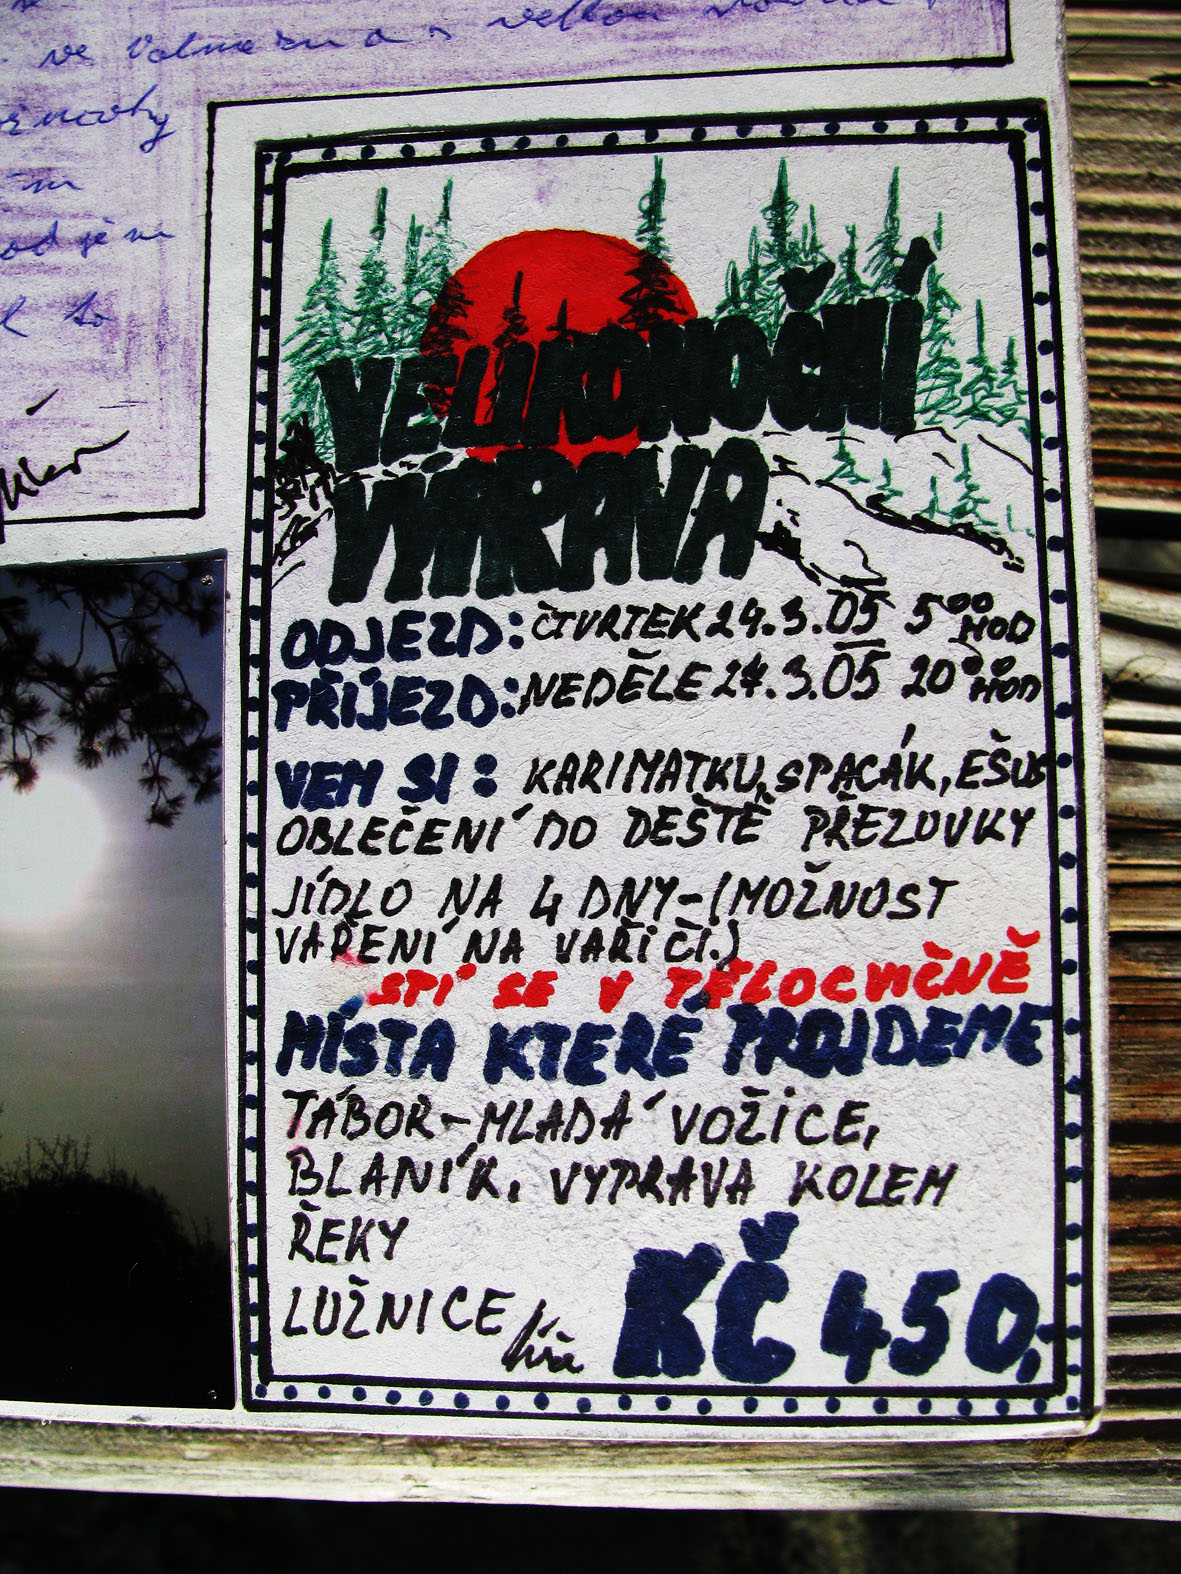 ve
VELIKONOČNÍ
VÝPRAVA
ODJEZD: ČTVRTEK 24.3.05 5⁰⁰ HOD
PŘÍJEZD: NEDĚLE 24.3.05 20⁰⁰ HOD
VEM SI: KARIMATKU, SPACÁK, EŠUS
OBLEČENÍ DO DEŠTĚ PŘEZUVKY
JÍDLO NA 4 DNY-(MOŽNOST
VAŘENÍ NA VAŘIČI.)
SPÍ SE V TĚLOCVIČNĚ
MÍSTA KTERÉ PROJDEME
TÁBOR-MLADÁ VOŽICE,
BLANÍK, VYPRAVA KOLEM
ŘEKY
LUŽNICE
KČ 450,-